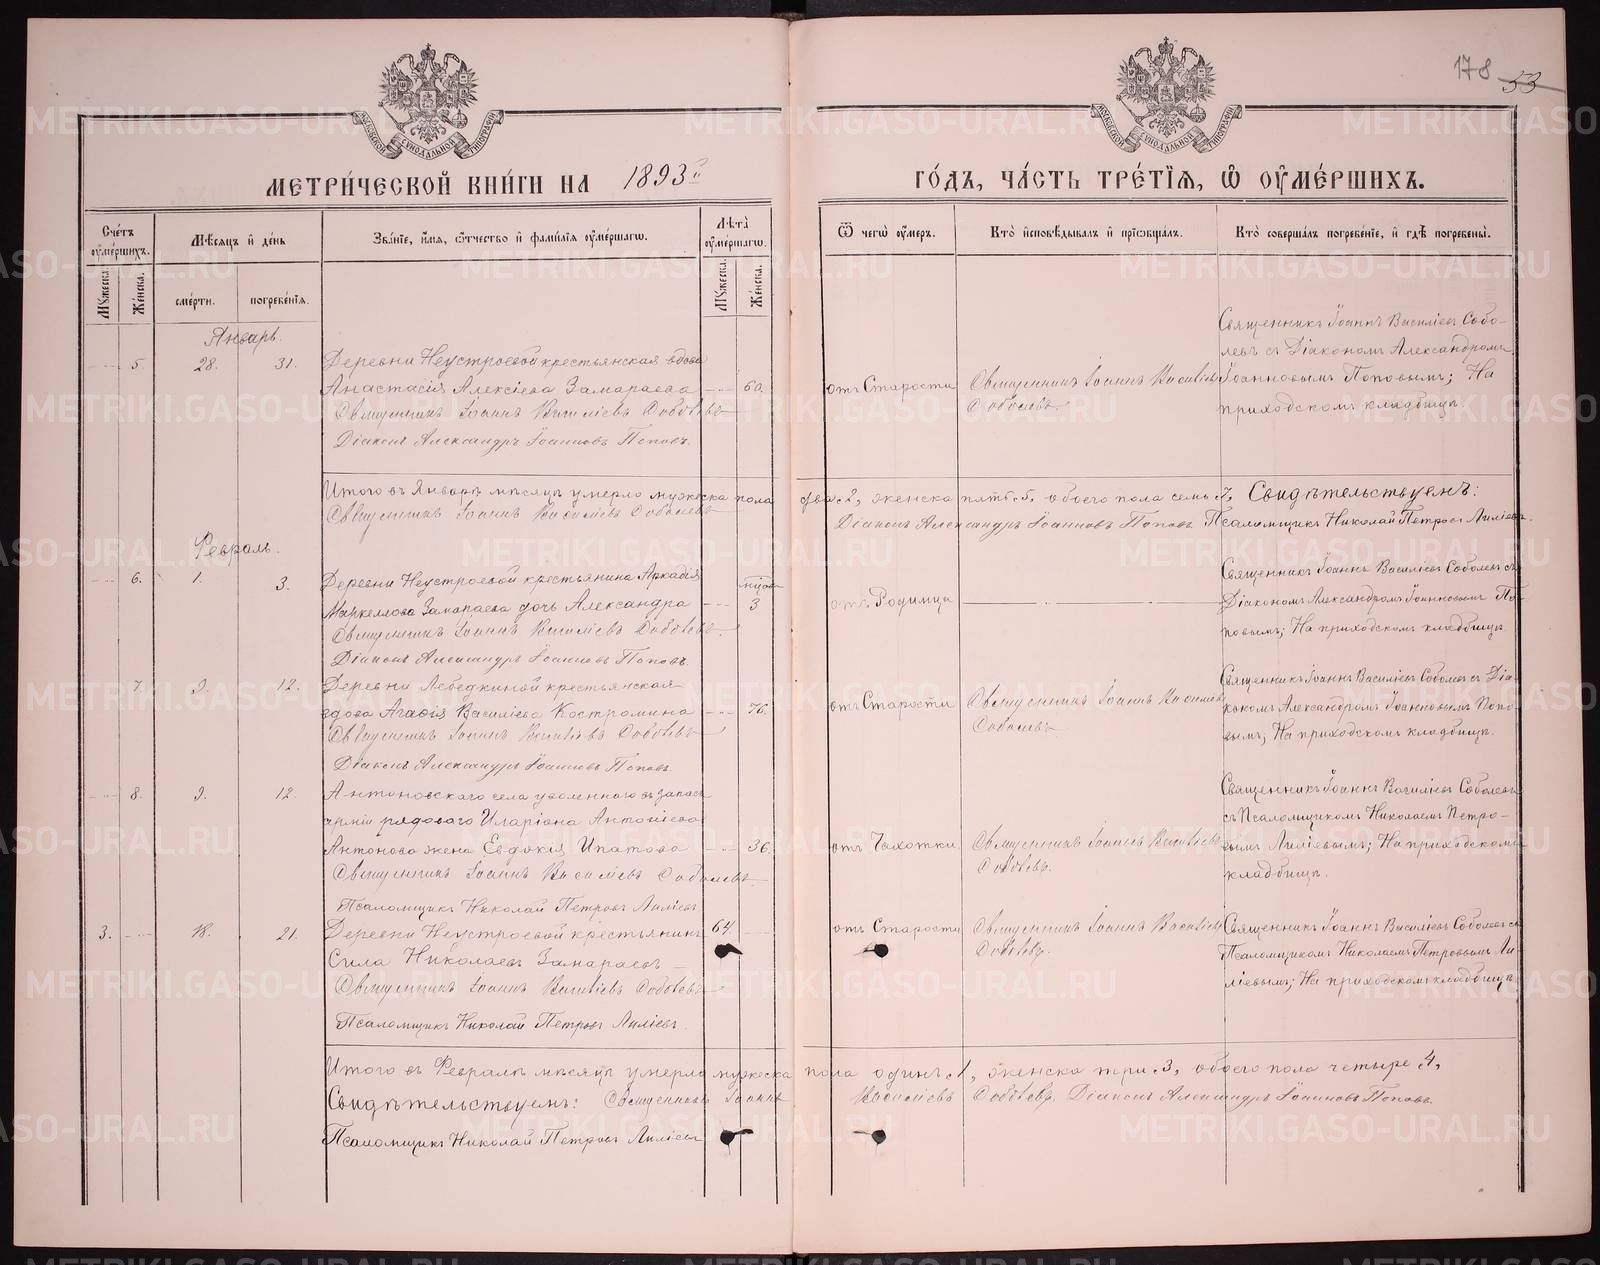 178 53
МОСКОВСКОЙ СѴНОДАЛЬНОЙ ТИПОГРАФІИ
МОСКОВСКОЙ СѴНОДАЛЬНОЙ ТИПОГРАФІИ
МЕТРИ́ЧЕСКОЙ КНИ́ГИ НА 1893й ГО́ДЪ, ЧА́СТЬ ТРЕ́ТІЯ, Ѿ ОУМЕ́РШИХЪ.
Счётъ оумершихъ.
Мужеска.
Женска.
Мѣсяцъ и день
смерти.
погребенія.
Званіе, имя, отчество и фамилія оумершагω.
Лѣта оумершагω.
Мужеска.
Женска.
Ѿ чегω оумеръ.
Кто исповѣдывалъ и пріωбщалъ.
Кто совершалъ погребеніе, и гдѣ погребены.
Январь.
5. 28. 31.
Деревни Неустроевой крестьянская вдова
Анастасія Алексіева Замараева 60.
Священникъ Іоаннъ Василіевъ Соболевъ
Діаконъ Александръ Іоанновъ Поповъ.
отъ Старости
Священникъ Іоаннъ Василіевъ
Соболевъ.
Священникъ Іоаннъ Василіевъ Собо-
левъ съ Діакономъ Александромъ
Іоанновымъ Поповымъ; На
приходскомъ кладбищѣ.
Итого въ Январѣ мѣсяцѣ умерло мужеска пола два 2, женска пять 5, обоего пола семь 7, Свидѣтельствуемъ:
Священникъ Іоаннъ Василіевъ Соболевъ Діаконъ Александръ Іоанновъ Поповъ Псаломщикъ Николай Петровъ Лиліевъ.
Февраль.
6. 1. 3.
Деревни Неустроевой крестьянина Аркадія
Маркеллова Замараева дочь Александра 3
Священникъ Іоаннъ Василіевъ Соболевъ
Діаконъ Александръ Іоанновъ Поповъ.
отъ Родимца
Священникъ Іоаннъ Василіевъ Соболевъ съ
Діакономъ Александромъ Іоанновымъ По-
повымъ; На приходскомъ кладбищѣ
7. 9. 12.
Деревни Лебедкиной крестьянская
вдова Агафія Василіева Костромина 76.
Священникъ Іоаннъ Василіевъ Соболевъ
Діаконъ Александръ Іоанновъ Поповъ.
отъ Старости
Священникъ Іоаннъ Василіевъ
Соболевъ.
Священникъ Іоаннъ Василіевъ Соболевъ съ Діа-
кономъ Александромъ Іоанновымъ Попо-
вымъ; На приходскомъ кладбищѣ.
8. 9. 12.
Антоновскаго села уволеннаго въ запасъ
арміи рядоваго Иларіона Антоніева
Антонова жена Евдокія Ипатова 36.
Священникъ Іоаннъ Василіевъ Соболевъ
Псаломщикъ Николай Петровъ Лиліевъ
отъ Чахотки
Священникъ Іоаннъ Василіевъ
Соболевъ.
Священникъ Іоаннъ Василіевъ Соболевъ
съ Псаломщикомъ Николаемъ Петро-
вымъ Лиліевымъ; На приходскомъ
кладбищѣ.
3. 18. 21.
Деревни Неустроевой крестьянинъ 64
Сила Николаевъ Замараевъ
Священникъ Іоаннъ Василіевъ Соболевъ
Псаломщикъ Николай Петровъ Лиліевъ.
отъ Старости
Священникъ Іоаннъ Василіевъ
Соболевъ.
Священникъ Іоаннъ Василіевъ Соболевъ съ
Псаломщикомъ Николаемъ Петровымъ Ли-
ліевымъ; На приходскомъ кладбищѣ.
Итого въ Февралѣ мѣсяцѣ умерло мужеска пола одинъ 1, женска три 3, обоего пола четыре 4,
Свидѣтельствуемъ: Священникъ Іоаннъ Василіевъ Соболевъ. Діаконъ Александръ Іоанновъ Поповъ.
Псаломщикъ Николай Петровъ Лиліевъ
METRIKI.GASO-URAL.RU